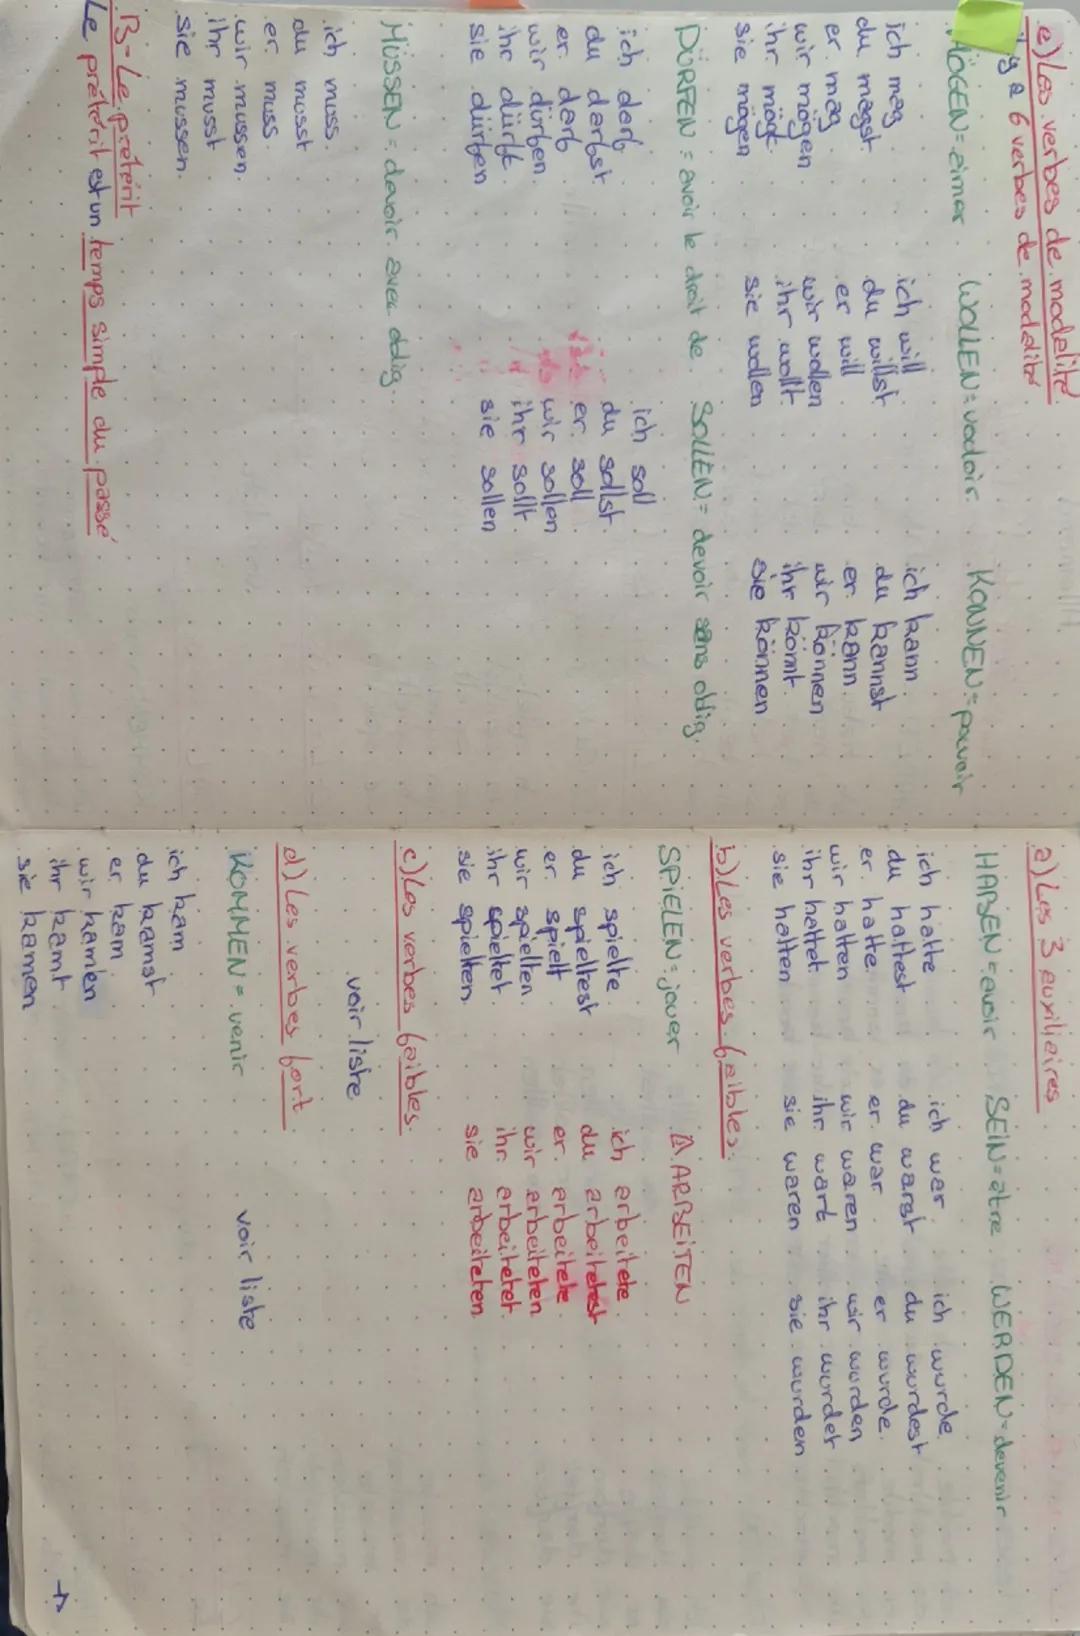 e) Les verbes de modalité
y a 6 verbes de modalité
MÖGEN = aimer
ich mag
du magst
er mag
wir mögen
ihr mögt
sie mögen
WOLLEN = vouloir
ich will
du willst
er will
wir wollen
ihr wollt
sie wollen
KONNEN = pouvoir
ich kann
du kannst
er kann
wir können
ihr könnt
sie können
DÜRFEN = avoir le droit de
ich darf
du darfst
er darf
wir dürfen
ihr dürft
sie dürfen
SOLLEN = devoir sans oblig.
ich soll
du sollst
er soll
wir sollen
ihr sollt
sie sollen
MÜSSEN = devoir avec oblig.
ich muss
du musst
er muss
wir mussen
ihr musst
sie mussen
B - Le prétérit
Le prétérit est un temps simple du passé
a) Les 3 auxiliaires
HABEN = avoir
ich hatte
du hattest
er hatte
wir hatten
ihr hattet
sie hatten
SEIN = être
ich war
du warst
er war
wir waren
ihr wart
sie waren
WERDEN = devenir
ich wurde
du wurdest
er wurde
wir wurden
ihr wurdet
sie wurden
b) Les verbes faibles
SPIELEN = jouer
ich spielte
du spieltest
er spielt
wir spielten
ihr spieltet
sie spielten
⚠ ARBEITEN
ich arbeitete
du arbeitetest
er arbeitete
wir arbeiteten
ihr arbeitetet
sie arbeiteten
c) Les verbes faibles
voir liste
d) Les verbes fort
KOMMEN = venir
voir liste
ich kam
du kamst
er kam
wir kamen
ihr kamt
sie kamen